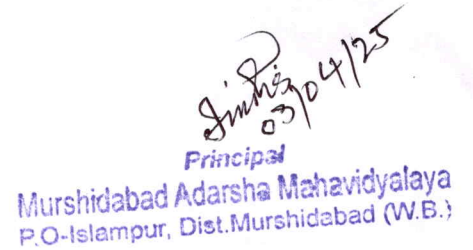 03/04/25
Principal
Murshidabad Adarsha Mahavidyalaya
P.O-Islampur, Dist.Murshidabad (W.B.)